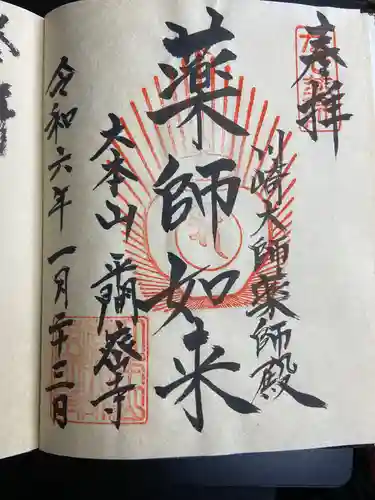 奉拝
川崎大師薬師殿
薬師如来
大本山平間寺
令和六年一月二十三日